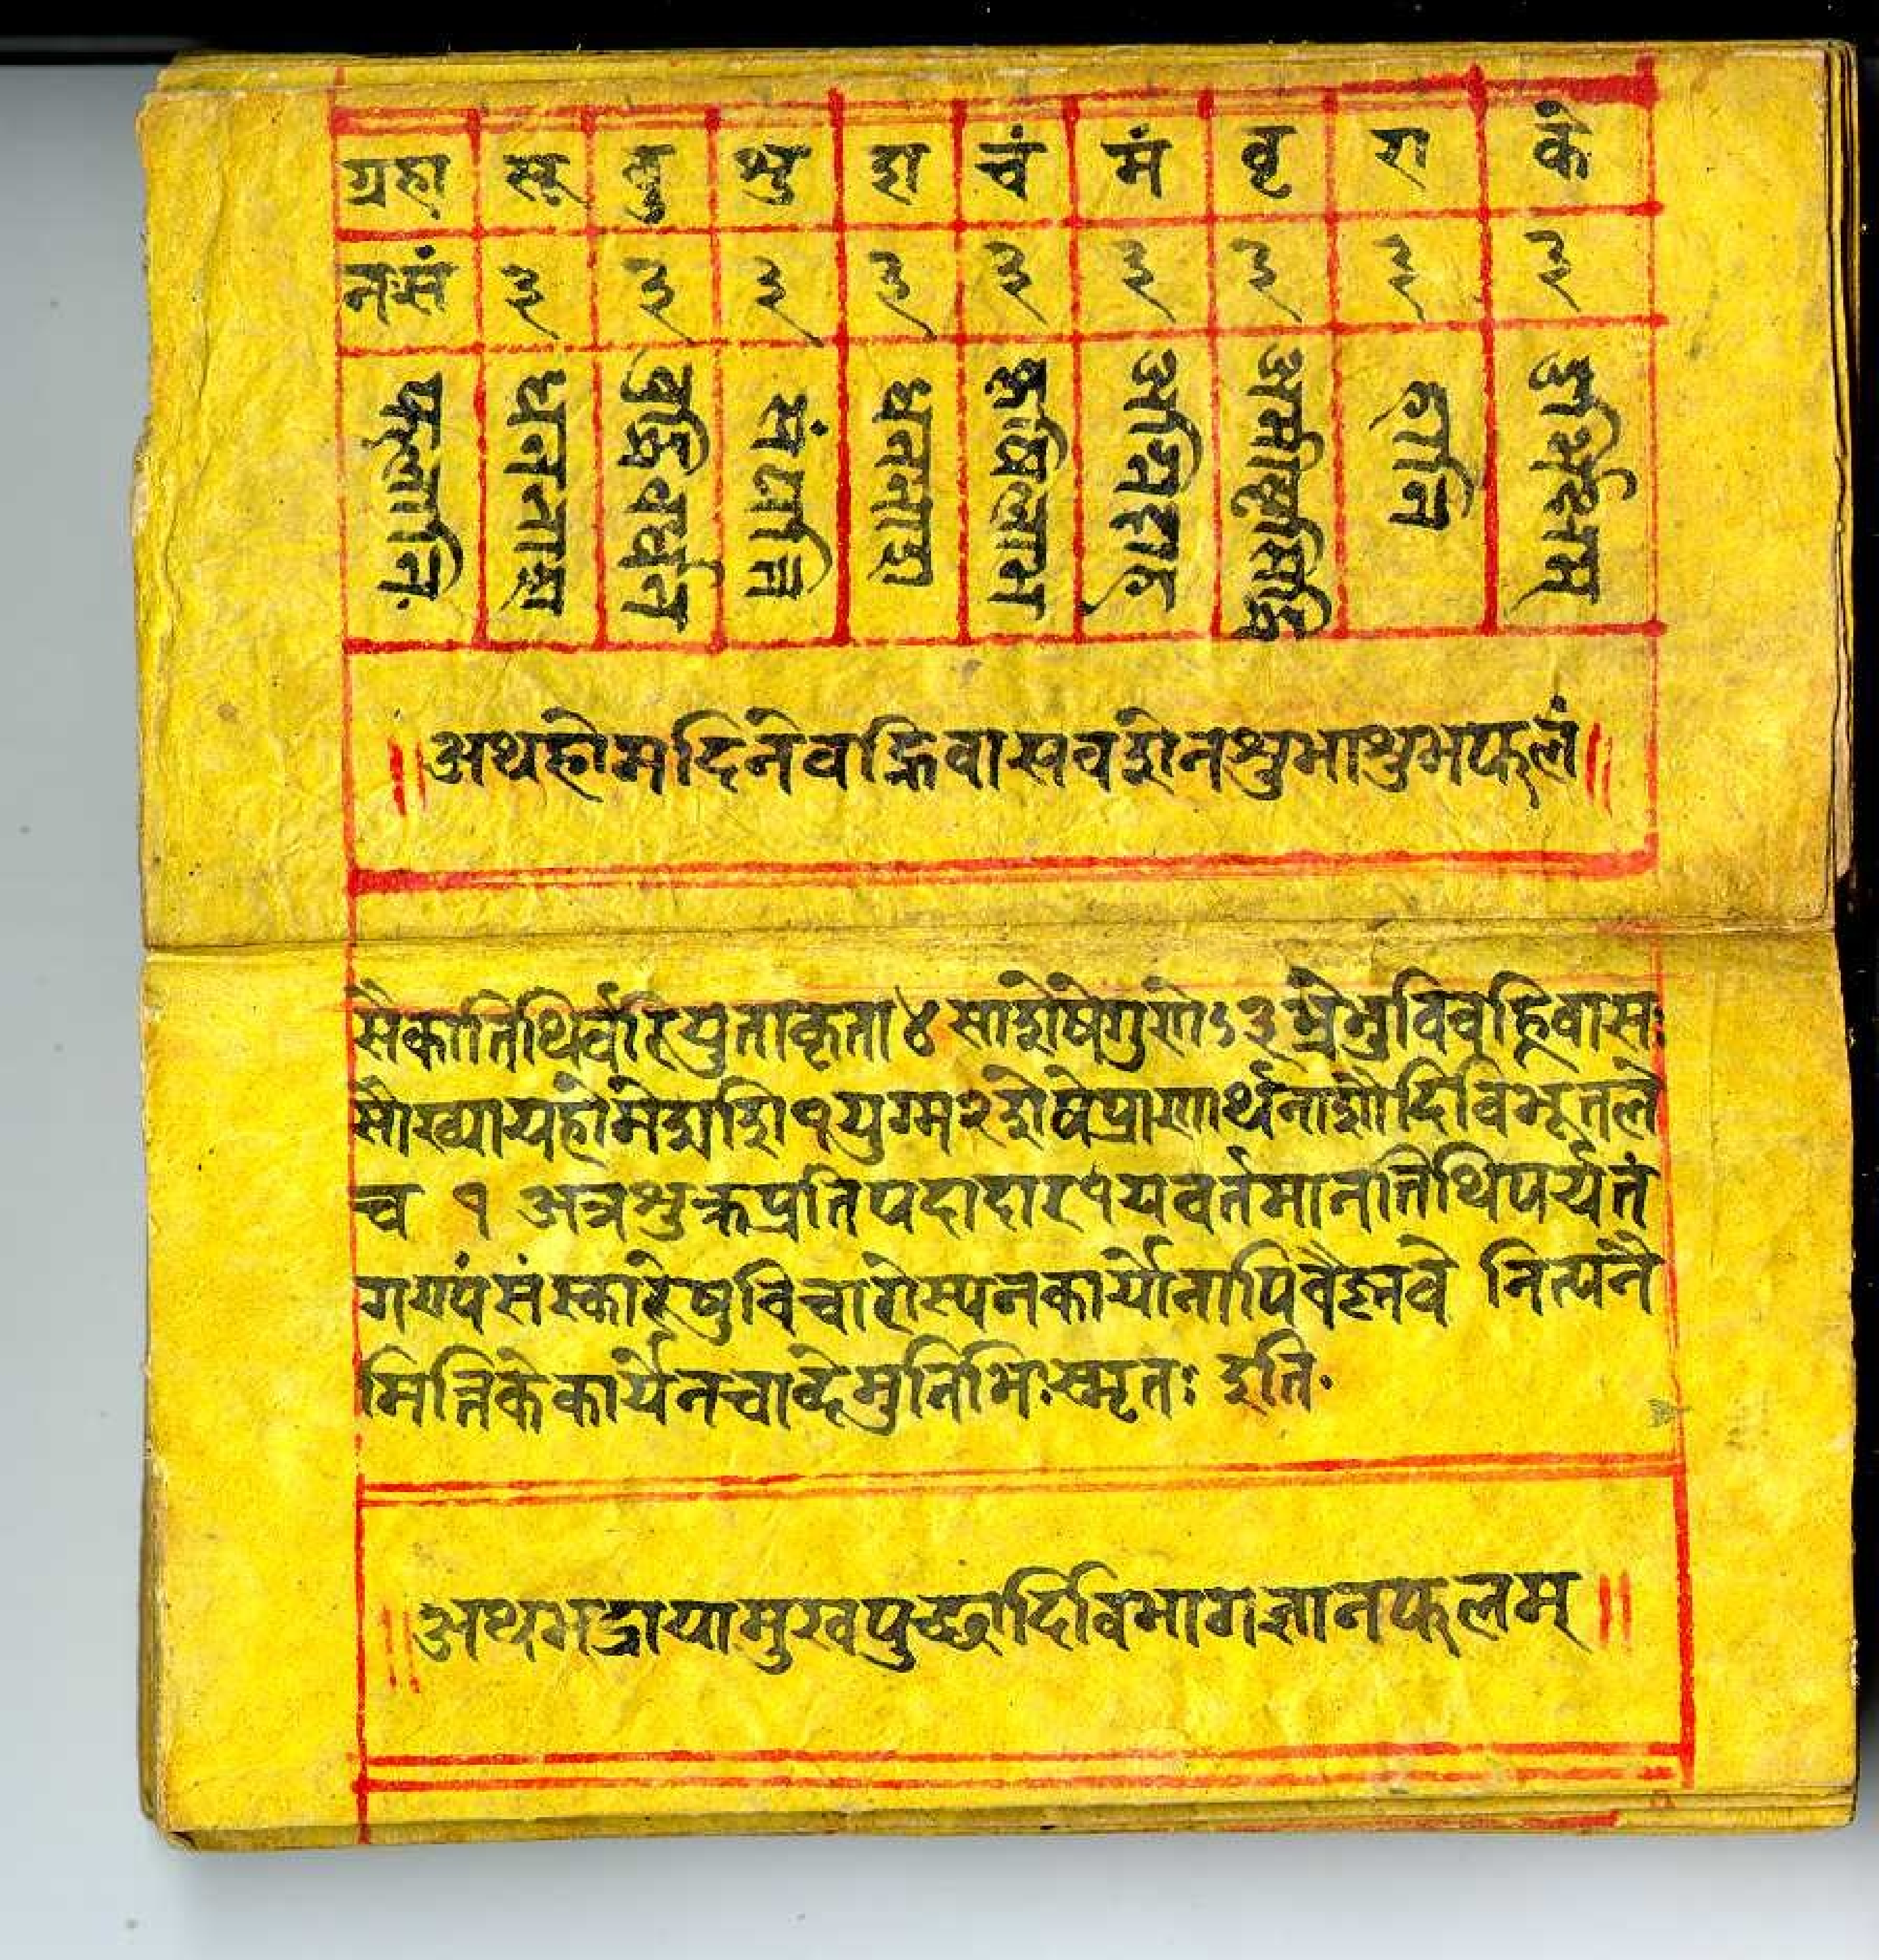 ग्रहा सू बु शु श चं मं वृ रा के
न.सं ३ ३ ३ ३ ३ ३ ३ ३ ३
फलानि. धननाश बुद्धिवर्धन संपत्ति धननाश ऋद्धिलाभ अग्निदाह अभीष्टसिद्धि हानि दुर्भिक्षम्
॥ अथहोमदिनेवह्निवासवशेनशुभाशुभफलं ॥
सैकातिथिर्वारयुताकृता४साशेषेगुणेऽ३भ्रेभुविवह्निवासः
सौख्यायहोमेशशि१युग्म२शेषेप्राणार्थनाशौदिविभूतले
च १ अत्रशुक्लप्रतिपदादारभ्यवर्तमानतिथिपर्यंतं
गण्यंसंस्कारेषुविचारोस्यनकार्योनापिवैष्नवे नित्यनै
मित्तिकेकार्येनचाब्देमुनिभिःस्मृतः इति.
॥ अथभद्रायामुखपुच्छादिविभागज्ञानफलम् ॥